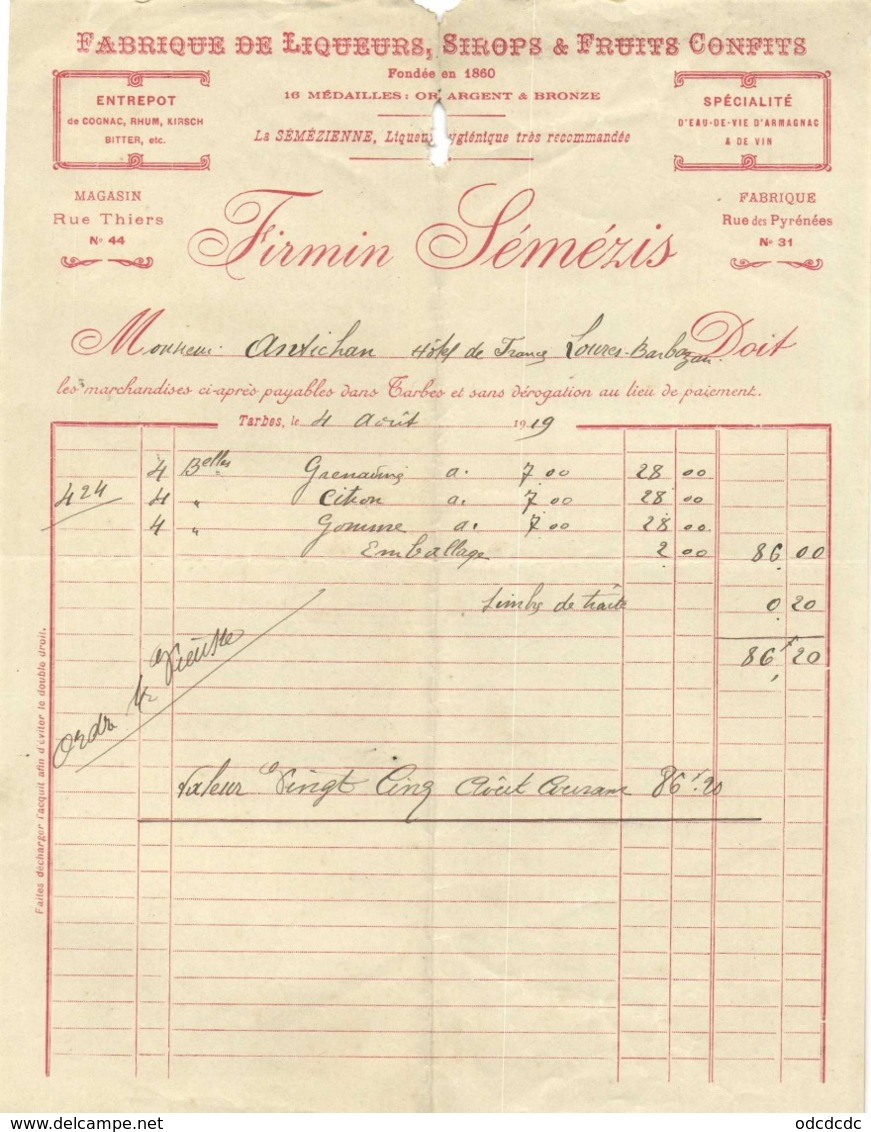 FABRIQUE DE LIQUEURS, SIROPS & FRUITS CONFITS
Fondée en 1860
16 MÉDAILLES: OR, ARGENT & BRONZE
La SÉMÉZIENNE, Liqueur hygiénique très recommandée
ENTREPOT
de COGNAC, RHUM, KIRSCH
BITTER, etc.
SPÉCIALITÉ
D'EAU-DE-VIE D'ARMAGNAC
& DE VIN
MAGASIN
Rue Thiers
No 44
Firmin Sémézis
FABRIQUE
Rue des Pyrénées
No 31
Monsieur Antichan Hôtel de France Loures-Barbazan Doit
les marchandises ci-après payables dans Tarbes et sans dérogation au lieu de paiement.
Tarbes, le 4 Août 1919
4 Belles Grenadine a. 7.00 28 00
424 4 " Citron a. 7.00 28 00
4 " Gomme a. 7.00 28 00
Emballage 2 00 86 00
Timbre de traite 0 20
86 f 20
Ordre
Valeur Vingt Cinq Août Courant 86 f. 20
Faites décharger l'acquit afin d'éviter le double droit.
odcdcdc